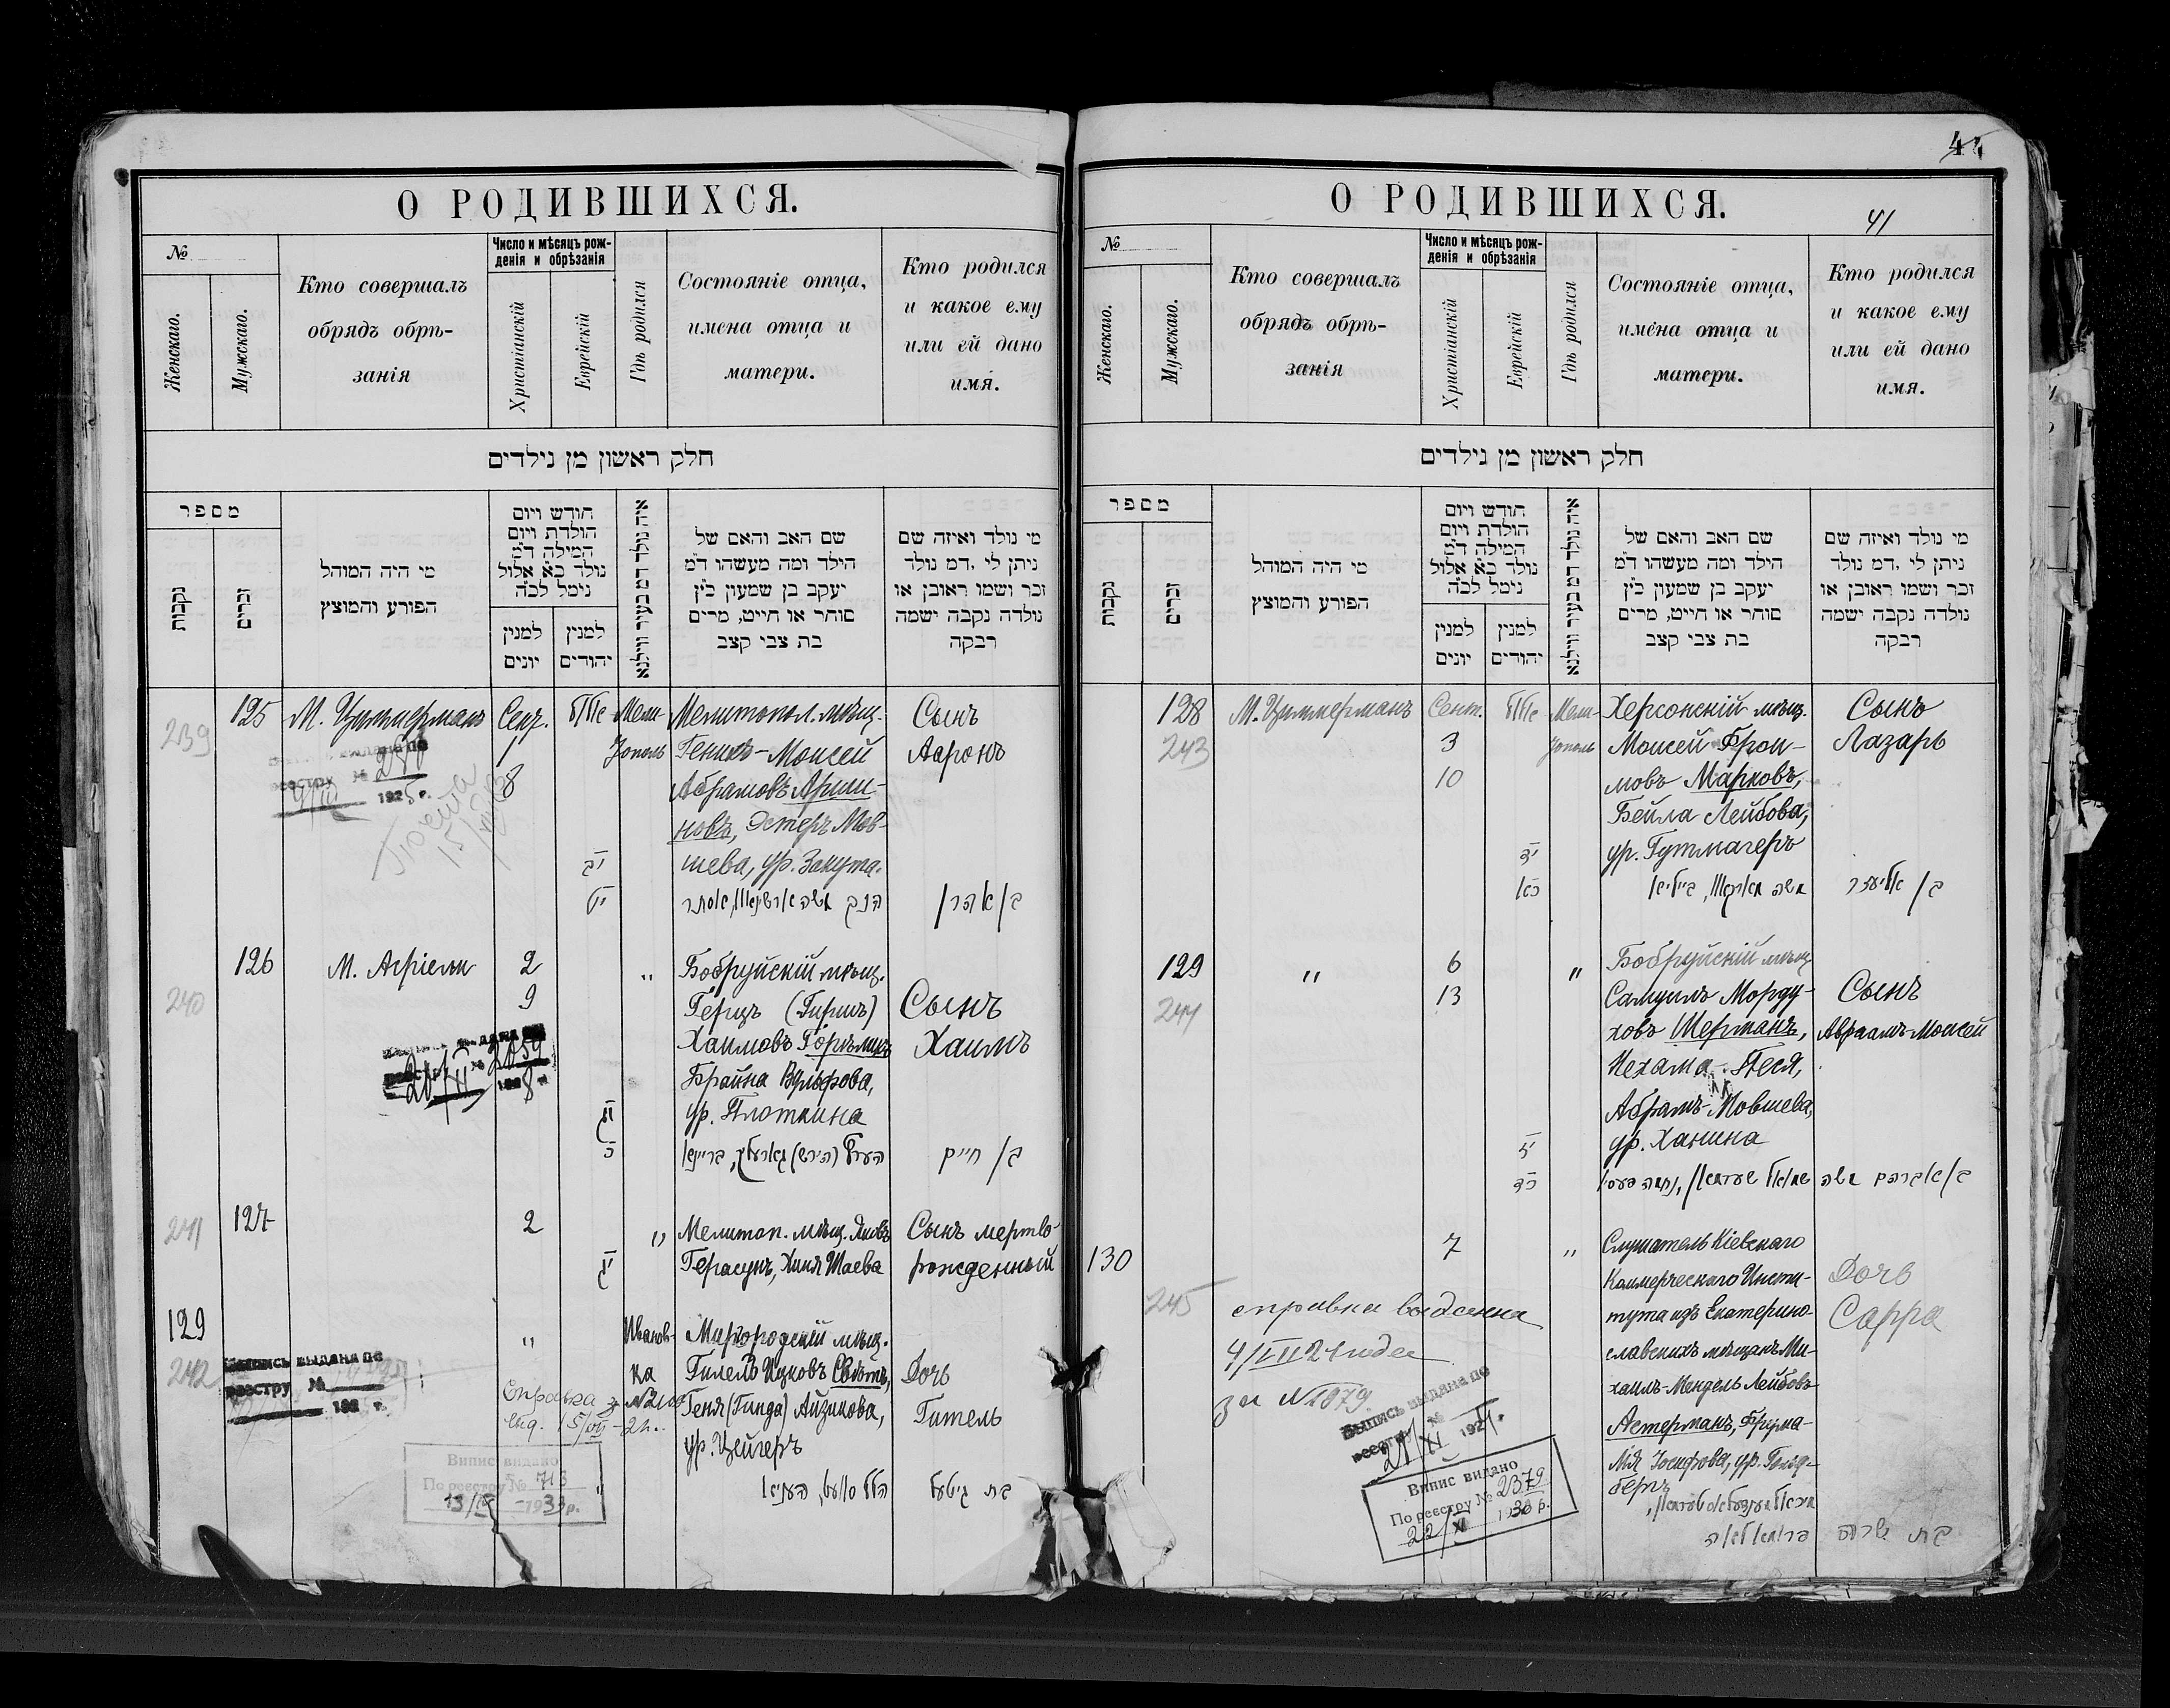 О РОДИВШИХСЯ.
№
Женскаго.
Мужскаго.
Кто совершалъ
обрядъ обрѣ-
занія
Число и мѣсяцъ рож-
денія и обрѣзанія
Христіанскій
Еврейскій
Гдѣ родился
Состояніе отца,
имена отца и
матери.
Кто родился
и какое ему
или ей дано
имя.
חלק ראשון מן נילדים
מספר
נקבות
זכרים
מי היה המוהל
הפורע והמוצץ
חודש ויום
הולדת ויום
המילה דמ
נולד כא אלול
נימל לכה
למנין
יונים
למנין
יהודים
איה נולד דמ בעיר ווילנא
שם האב והאם של
הילד ומה מעשהו דמ
יעקב בן שמעון כץ
סוחר או חייט, מרים
בת צבי קצב
מי נולד ואיזה שם
ניתן לי דמ נולד
זכר ושמו ראובן או
נולדה נקבה ישמה
רבקה
239
125
М. Циммерманъ
Сент.
1
8
אלול
יב
יט
Мели-
тополь
Мелитопол. мѣщ.
Генихъ-Моисей
Абрамовъ Арши-
новъ, Эстеръ Мов-
шева, ур. Закута.
Сынъ
Ааронъ
בן אהרן
реестру №
1925 г.
240
126
М. Агріели
2
9
"
יג
כ
Бобруйскій мѣщ.
Герцъ (Гиршъ)
Хаимовъ
Брайна Вульфова,
ур. Плоткина
Сынъ
Хаимъ
בן חיים
241
127
2
יג
"
Мелитоп. мѣщ. Яковъ
Герасунъ, Хиня Шаева
Сынъ мертво-
рожденный
129
242
"
Иванов-
ка
Миргородскій мѣщ.
Гилель Ицковъ
Геня (Гинда) Айзикова,
ур. Цейгеръ
Дочь
Гитель
בת גיטעל
Выпись выдана по
реестру №
192 г.
Справка
Випис видано
По реестру № 713
О РОДИВШИХСЯ.
41
№
Женскаго.
Мужскаго.
Кто совершалъ
обрядъ обрѣ-
занія
Число и мѣсяцъ рож-
денія и обрѣзанія
Христіанскій
Еврейскій
Гдѣ родился
Состояніе отца,
имена отца и
матери.
Кто родился
и какое ему
или ей дано
имя.
חלק ראשון מן נילדים
מספר
נקבות
זכרים
מי היה המוהל
הפורע והמוצץ
חודש ויום
הולדת ויום
המילה דמ
נולד כא אלול
נימל לכה
למנין
יונים
למנין
יהודים
איה נולד דמ בעיר ווילנא
שם האב והאם של
הילד ומה מעשהו דמ
יעקב בן שמעון כץ
סוחר או חייט, מרים
בת צבי קצב
מי נולד ואיזה שם
ניתן לי דמ נולד
זכר ושמו ראובן או
נולדה נקבה ישמה
רבקה
128
243
М. Циммерманъ
Сент.
3
10
אלול
יד
כא
Мели-
тополь
Херсонскій мѣщ.
Моисей Фрои-
мовъ Марковъ,
Бейла Лейбова,
ур. Гутмахеръ
Сынъ
Лазарь
בן אליעזר
129
244
"
6
13
יז
כד
"
Бобруйскій мѣщ.
СамуилъМорду-
ховъ Шерманъ,
Нехама-Песя,
Абрамъ-Мовшева,
ур. Ханина
Сынъ
Авраамъ Моисей
בן אברהם משה
130
245
7
"
Слушатель Кіевскаго
Коммерческаго Инсти-
тута изъ Екатерино-
славскихъ мѣщанъ Ми-
хаилъ-Мендель Лейбовъ
Астерманъ, Фрума-
Мія Іосифова, ур. Гольд-
бергъ
Дочь
Сарра
בת שרה
справка выдана
за № 1079
Выпись выдана по
реестру №
21/XI 192 г.
Випис видано
По реестру № 2379
22/XI 1930 р.